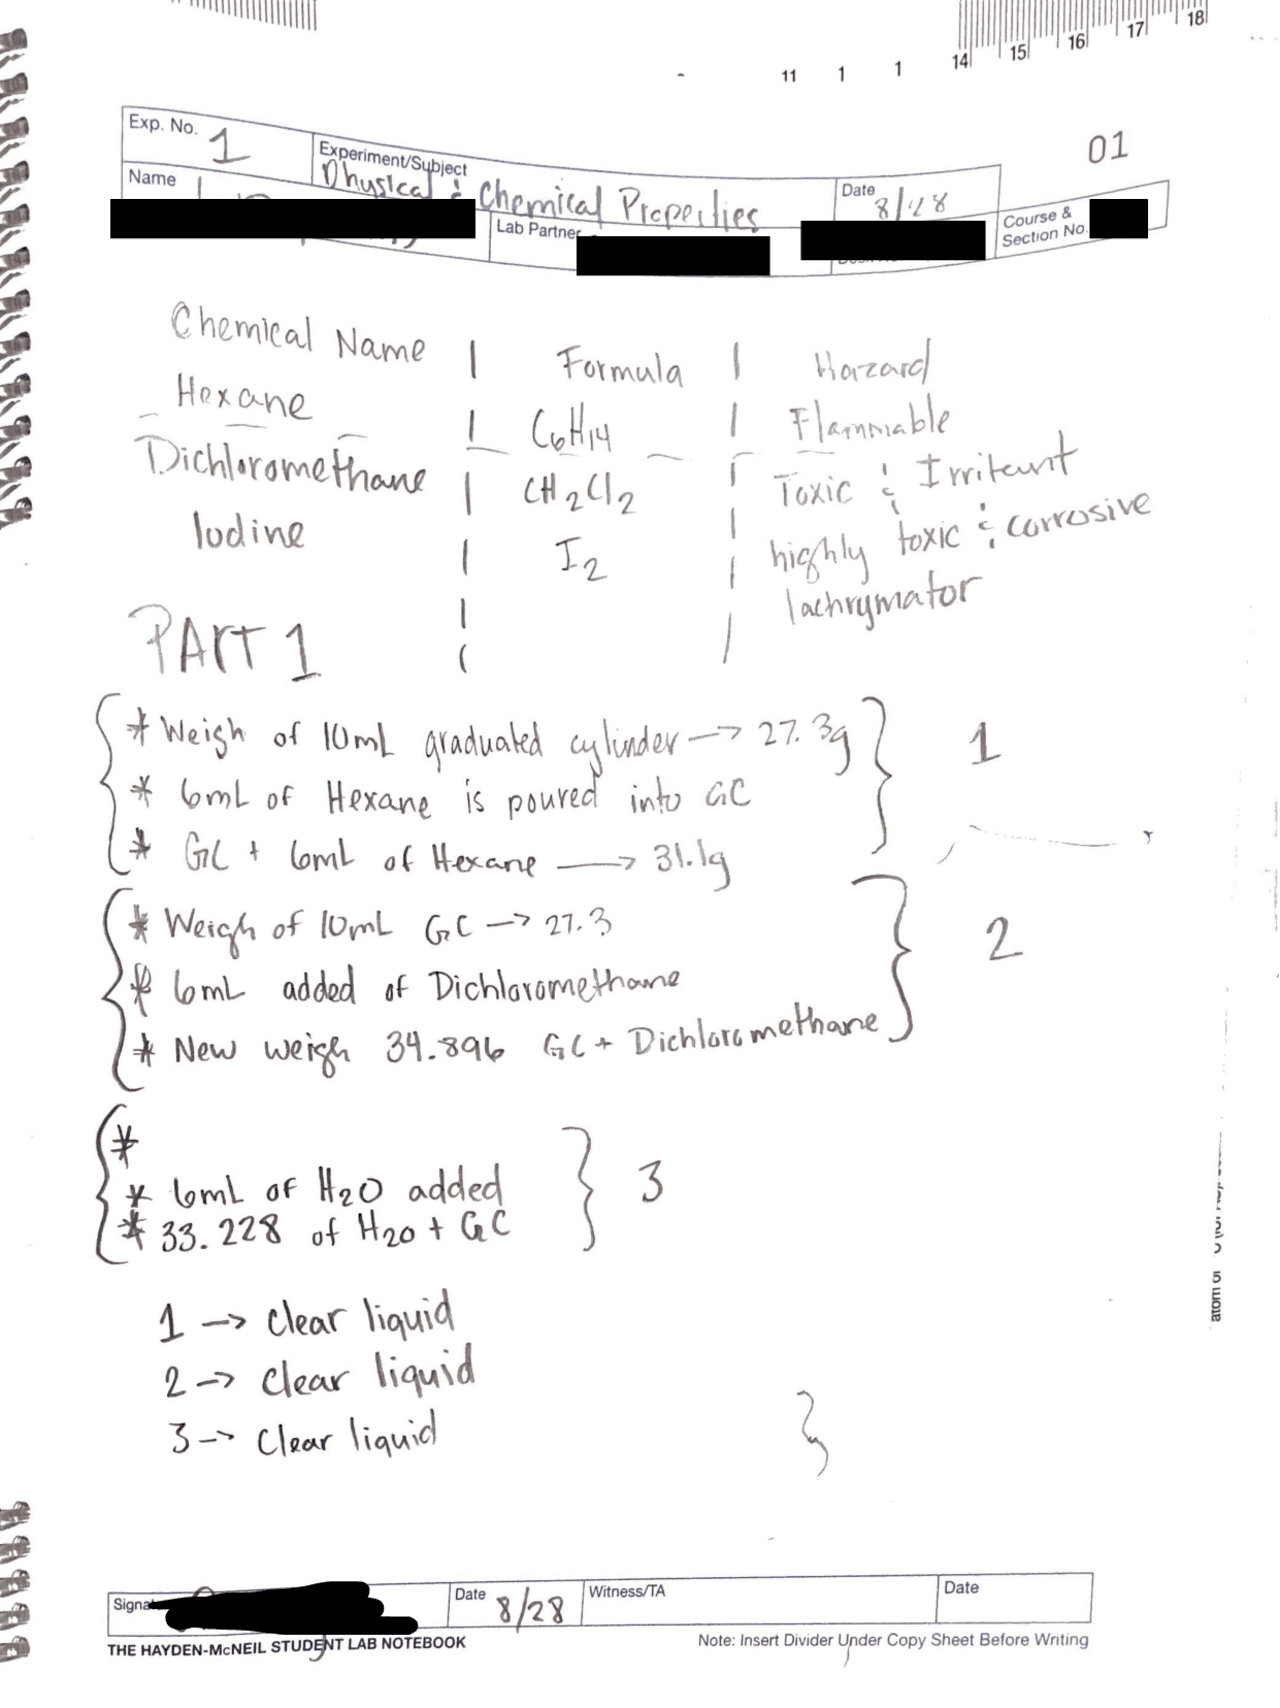 14 15 16 17 18
11 1 1
01
Exp. No. 1
Experiment/Subject
Physical & Chemical Properties
Date 8/28
Name
Lab Partner
Course &
Section No.
Chemical Name | Formula | Hazard
Hexane | C6H14 | Flammable
Dichloromethane | CH2Cl2 | Toxic & Irriteunt
Iodine | I2 | highly toxic & corrosive
lachrymator
PART 1
* Weigh of 10mL graduated cylinder → 27.3g
1
* 6mL of Hexane is poured into GC
* GC + 6mL of Hexane → 31.1g
* Weigh of 10mL GC → 27.3
2
* 6mL added of Dichloromethane
* New weigh 34.896 GC + Dichloromethane
*
* 6mL of H2O added
3
* 33.228 of H2O + GC
1 → clear liquid
2 → clear liquid
3 → clear liquid
Date 8/28
Witness/TA
Date
THE HAYDEN-McNEIL STUDENT LAB NOTEBOOK
Note: Insert Divider Under Copy Sheet Before Writing